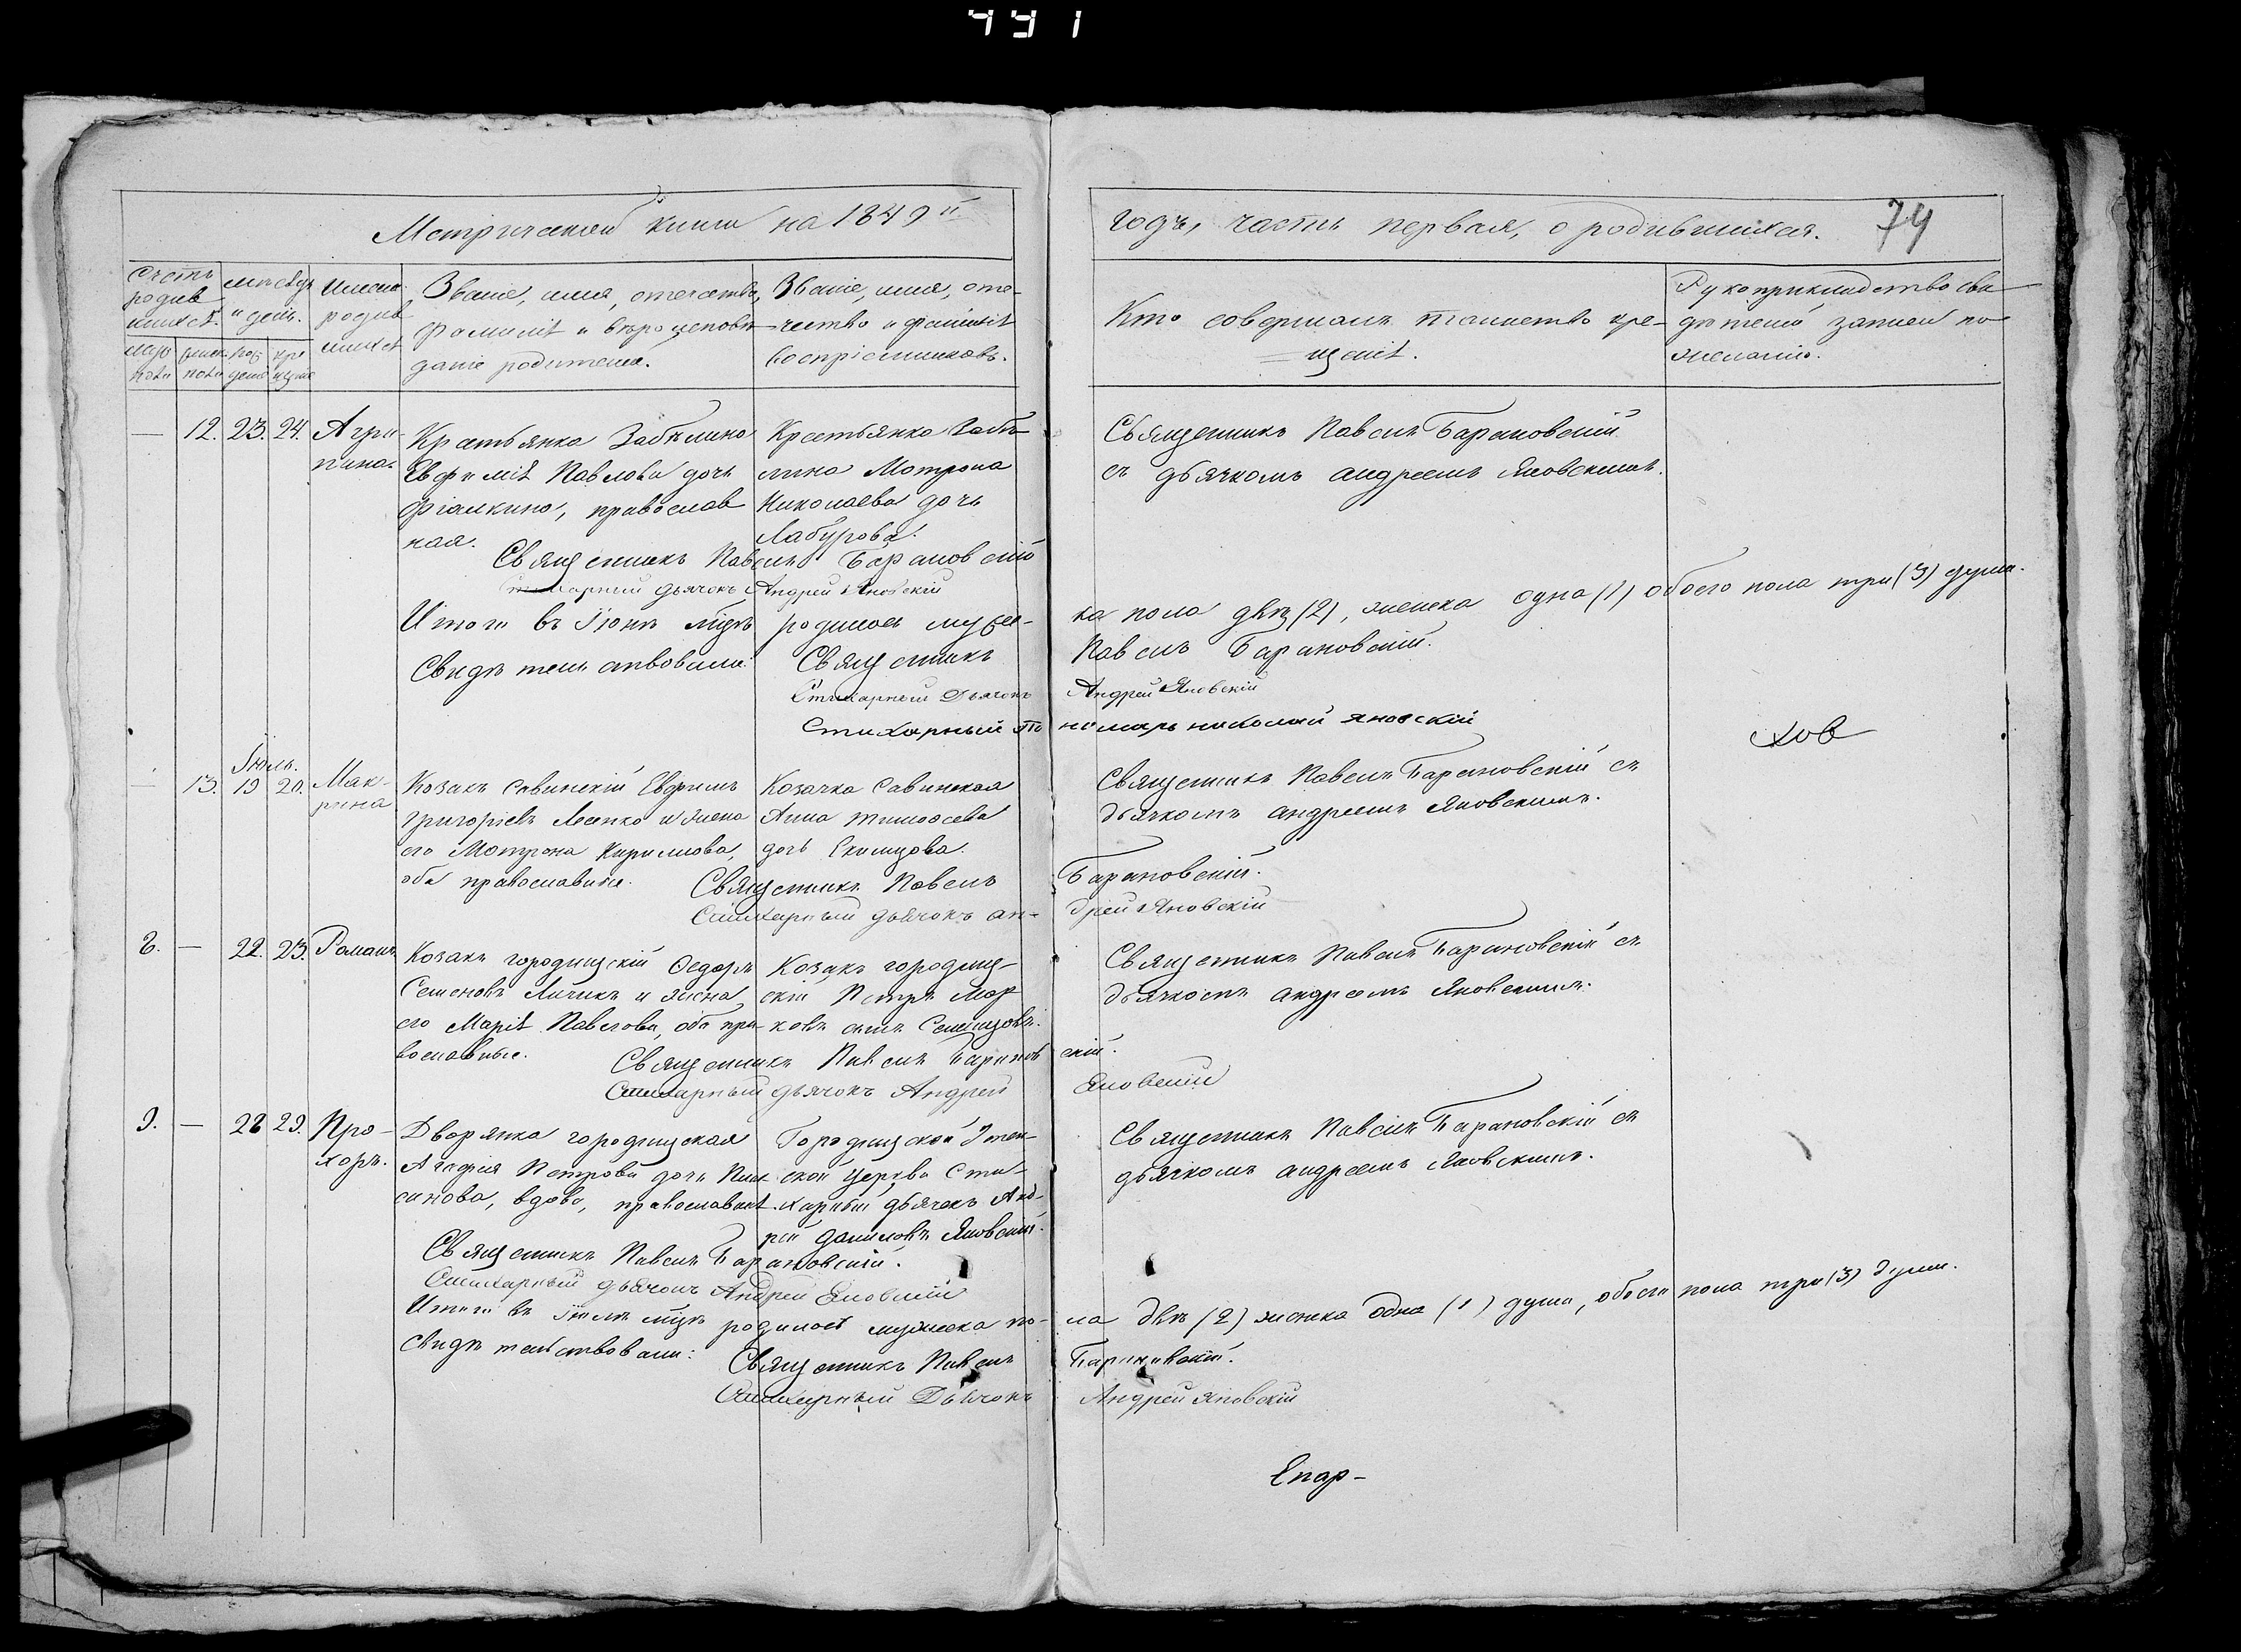 441
Метрической книги на 1849й
годъ, часть первая, о родившихся.
74
Счетъ родив шихся.
мѣсяцъ и день.
Имена родив шихся
Званіе, имя, отечество,
фамилія и вѣроисповѣ
даніе родителей.
Званіе, имя, оте-
чество и фамилія
воспріемниковъ.
Кто совершалъ таинство кре-
щенія.
Рукоприкладство сви
дѣтелей записи по
желанію.
муж пола
женск пола
рож денія
кре щенія
— 12. 23. 24. Агри-
пина.
Крестьянка Забѣлина
Евфимія Павлова дочь
православ
ная.
Крестьянка Забѣ
лина Мотрона
Николаева дочь
Лабурова.
Священникъ Павелъ Барановскій
съ дьячкомъ андреемъ Яновскимъ.
Священникъ Павелъ Барановскій
Стихарный дьячокъ Андрей Яновскій
Итого въ Іюнѣ мцѣ родилось мужес-
ка пола двѣ (2), женска одна (1) обоего пола три (3) души.
Свидѣтельствовали: Священникъ Павелъ Барановскій.
Стихарный Дьячокъ Андрей Яновскій
Стихарный пономарь николай яновскій
хов
Іюль.
— 13. 19 20. Мак-
рина
Козакъ савинскій Евфимъ
григоріевъ Леепко и жена
его Мотрона Кирилова,
оба православные.
Козачка Савинская
Анна тимофеева
дочь Екимцова.
Священникъ Павелъ Барановскій съ
дьячкомъ андреемъ Яновскимъ.
Священникъ Павелъ Барановскій.
Стихарный дьячокъ ан-дрей Яновскій
8. — 22. 23. Романъ
Козакъ городищскій Ѳедоръ
Семеновъ Личикъ и жена
его Марія Павлова, оба пра-
вославные.
Козакъ городищ-
скій Петръ Мар
ковъ сынъ Семенцовъ.
Священникъ Павелъ Барановскій съ
дьячкомъ андреемъ Яновскимъ.
Священникъ Павелъ Барановскій.
Стихарный дьячокъ Андрей Яновскій
9. — 28 29. Про-
хоръ.
Дворянка городищская
Агафия Петрова дочь
вдова, православная.
Городищской Успен-
ской Церкви Сти-
харный дьячекъ Анд-
рей Даниловъ Яновскій.
Священникъ Павелъ Барановскій съ
дьячкомъ андреемъ Яновскимъ.
Священникъ Павелъ Барановскій.
Стихарный дьячокъ Андрей Яновскій
Итого въ Іюлѣ мцѣ родилось мужеска по-
ла двѣ (2) женска одна (1) душа, обоего пола три (3) души.
Свидѣтельствовали: Священникъ Павелъ Барановскій.
Стихарный Дьячокъ Андрей Яновскій
Епар-